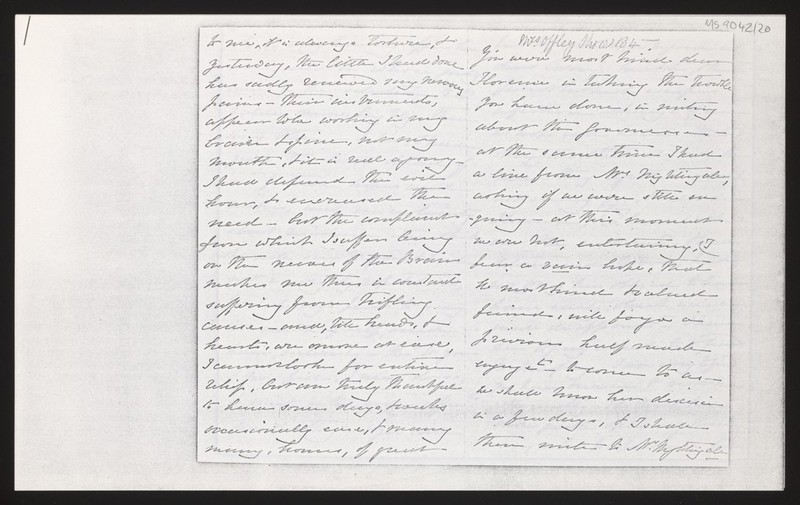 MS 9042/20
to me, it is always torture, &
yesterday, the little I had done
has sadly renewed my nervous
pains - their instruments,
appear to be working in my
brain & spine, not my
mouth, & it is real agony -
I had deferred the evil
hour, & increased the
need - but the complaint
from which I suffer being
on the nerves of the Brain
makes me thus in constant
suffering from trifling
causes - and, till heads, &
hearts, are more at ease,
I cannot look for entire
relief, but am truly thankful
to have some days, & weeks
occasionally ease, & many
many, hours, of great
Mrs Offley Shore 184
You were most kind dear
Florence in taking the trouble
you have done, in writing
about the Governesses -
at the same time I had
a line from Mrs Nightingale,
asking if we were still en
quiring - at this moment
we are not, entertaining, (I
fear a vain hope, that
the most kind & valued
friend, will forgo a
previous half made
engagt. to come to us -
we shall know her decision
in a few days, & I shall
then write to Mrs Nightingale